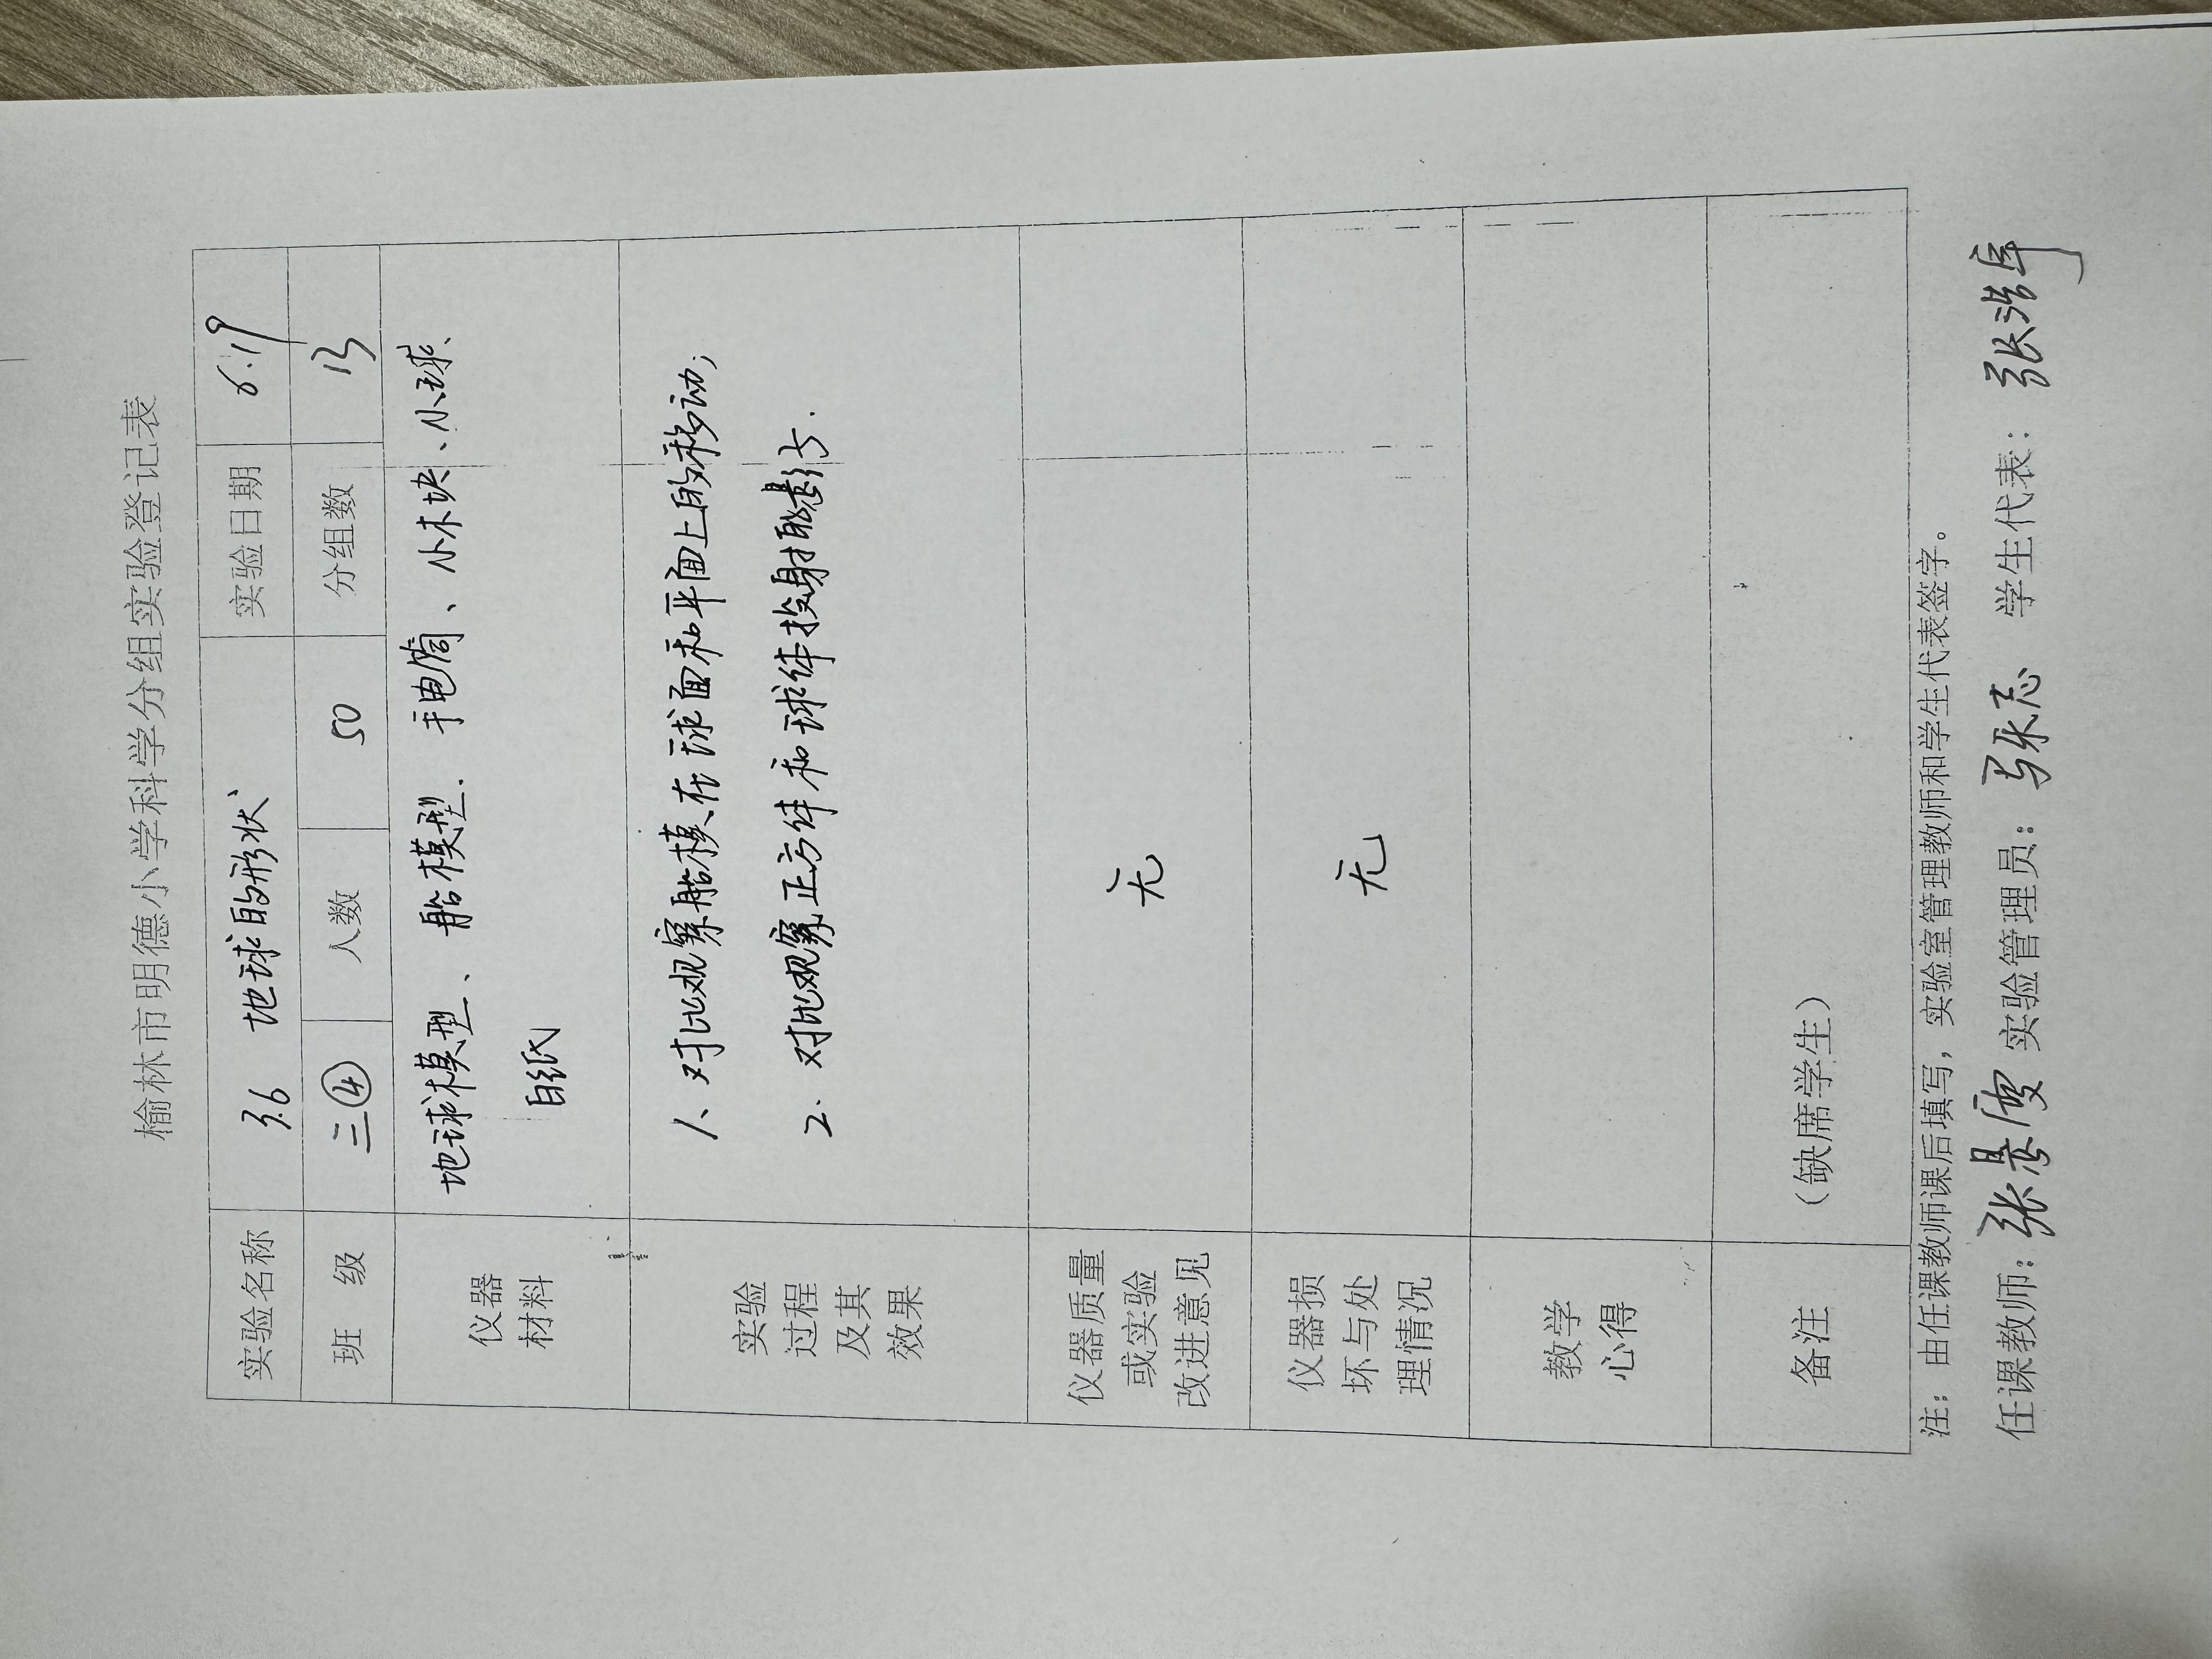 榆林市明德小学科学分组实验登记表
实验名称 3.6 地球的形状 实验日期 6.19
班 级 三④ 人数 50 分组数 13
仪器材料 地球模型、船模型、手电筒、小木块、小球、
白纸
实验过程及其效果 1、对比观察船模在球面和平面上的移动;
2. 对比观察正方体和球体投射的影子.
仪器质量或实验改进意见 无
仪器损坏与处理情况 无
教学心得
备注 (缺席学生)
注:由任课教师课后填写,实验室管理教师和学生代表签字。
任课教师:张 实验管理员: 学生代表:张浩